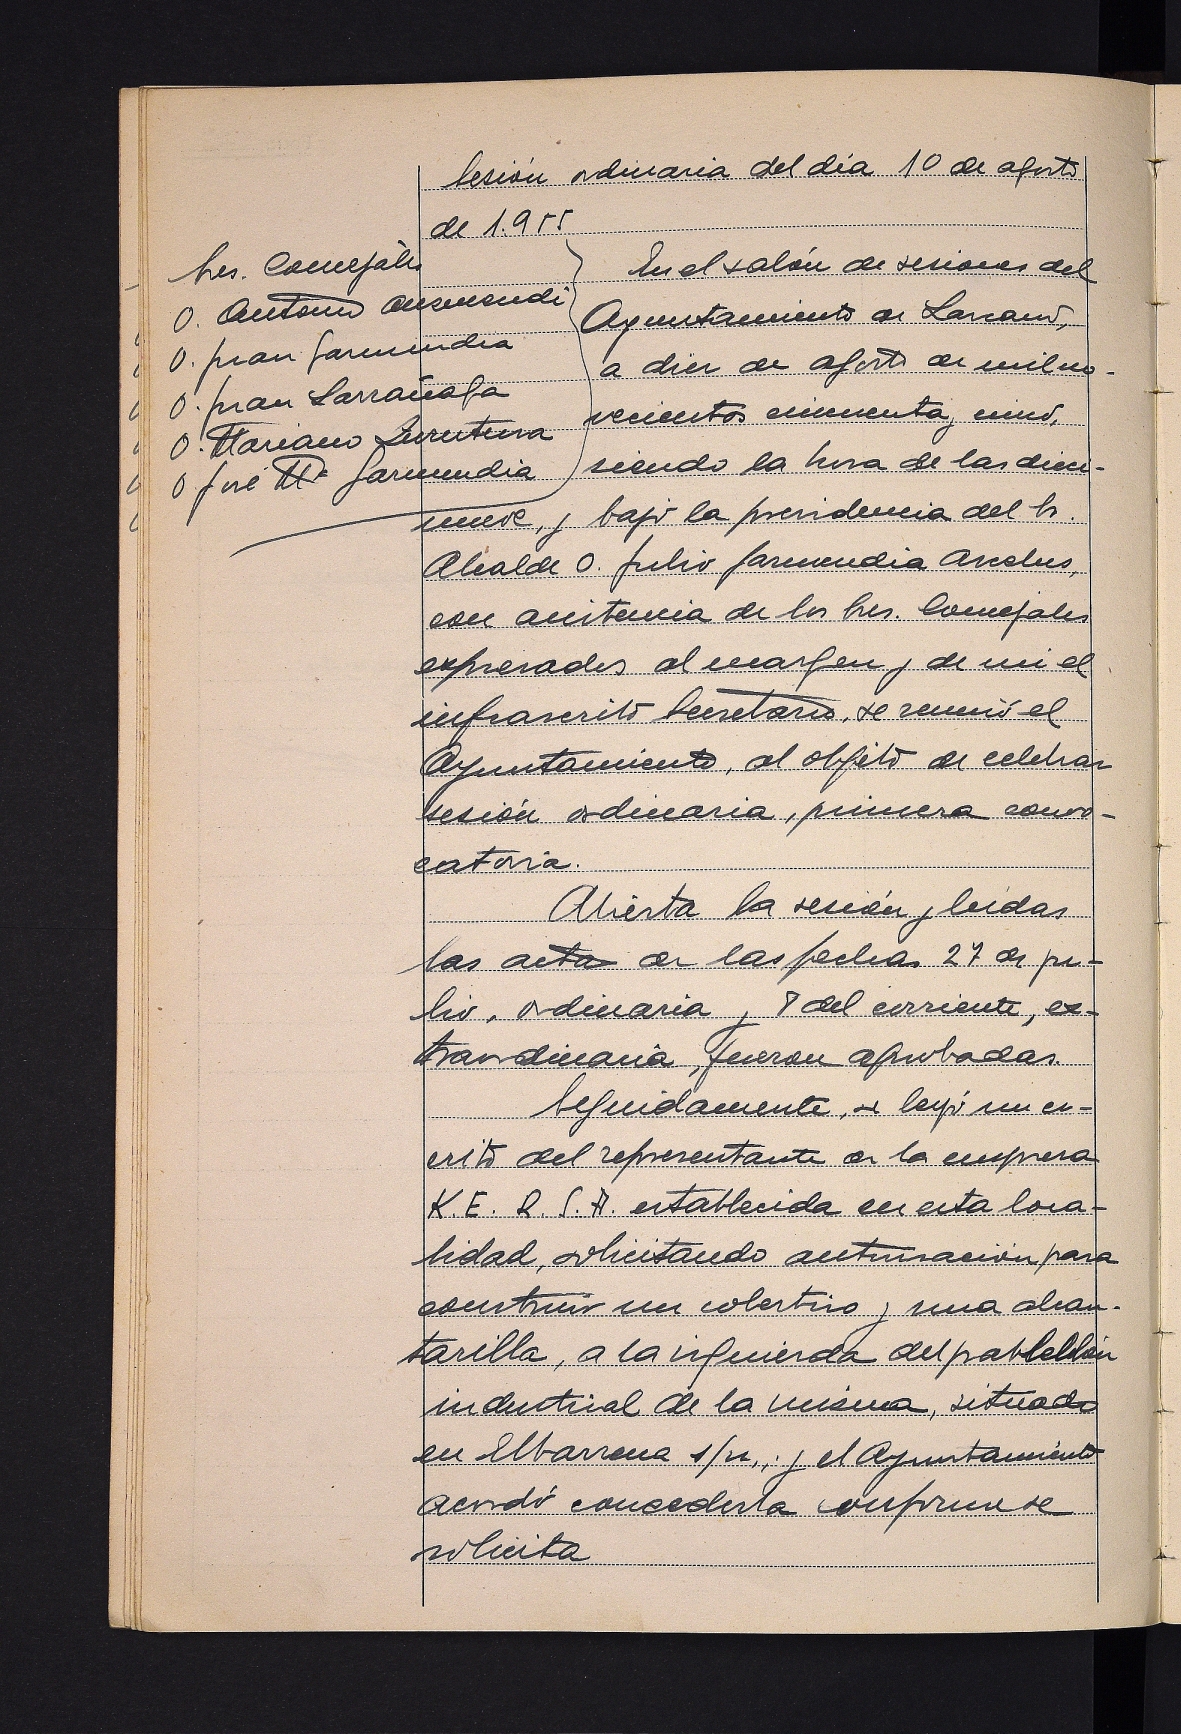 Sesión ordinaria del día 10 de agosto
de 1.955
Sres. Concejales
D. Antonio Ausmendi
D. Juan Garmendia
D. Juan Larrañaga
D. Mariano Zurutuza
D. José Mª Garmendia
En el salón de sesiones del
Ayuntamiento de Lazcano,
a diez de agosto de mil no-
vecientos cincuenta y cinco,
siendo la hora de las dieci-
nueve, y bajo la presidencia del Sr.
Alcalde D. Julio Garmendia Arcelus,
con asistencia de los Sres. Concejales
expresados al margen y de mi el
infrascrito Secretario, se reunió el
Ayuntamiento, al objeto de celebrar
sesión ordinaria, primera convo-
catoria.
Abierta la sesión y leídas
las acta de las fechas 27 de ju-
lio, ordinaria y 8 del corriente, ex-
traordinaria, fueron aprobadas.
Seguidamente, se leyó un es-
crito del representante de la empresa
K.E.R.S.A. establecida en esta loca-
lidad, solicitando autorización para
construir un cobertizo y una alcan-
tarilla, a la izquierda del pabellón
industrial de la misma, situado
en Elbarrena s/n,; y el Ayuntamiento
acordó concederla conforme se
solicita